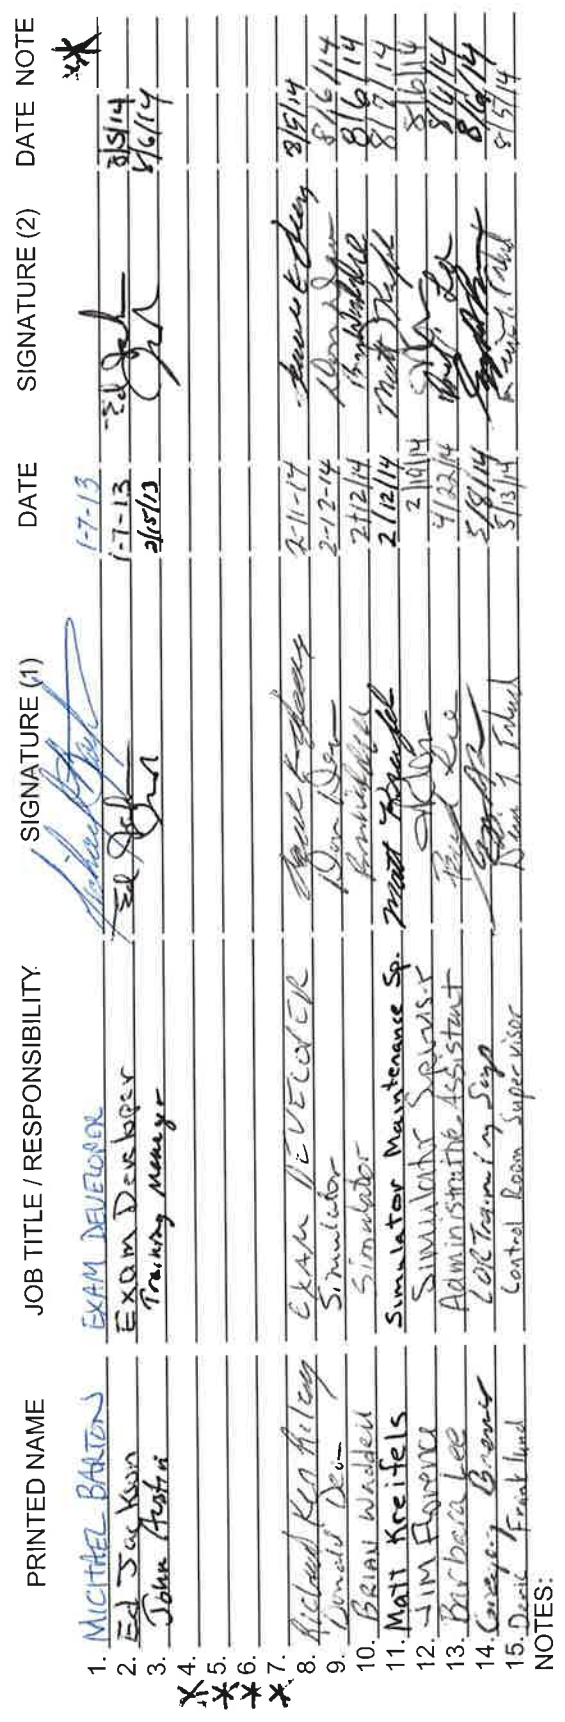 PRINTED NAME JOB TITLE / RESPONSIBILITY SIGNATURE (1) DATE SIGNATURE (2) DATE NOTE
1. MICHAEL BARTON EXAM DEVELOPER 1-7-13 **
2. Ed Jackson Exam Developer 1-7-13 8/5/14
3. John Austin Training Manager 2/15/13 8/6/14
* 4.
* 5.
* 6.
* 7.
8. Richard Ken Kiley EXAM DEVELOPER 2-11-14 8/5/14
9. Donald Simulator 2-12-14 8/6/14
10. BRIAN Waddell Simulator 2/12/14 8/6/14
11. Matt Kreifels Simulator Maintenance Sp. Matt 2/12/14 Matt 8/7/14
12. JIM Florence Simulator 2/19/14 8/6/14
13. Barbara Lee Administrative Assistant 4/22/14 8/6/14
14. Gregory LOR Training Sup 5/8/14
15. Control Room Supervisor 5/13/14 8/5/14
NOTES: